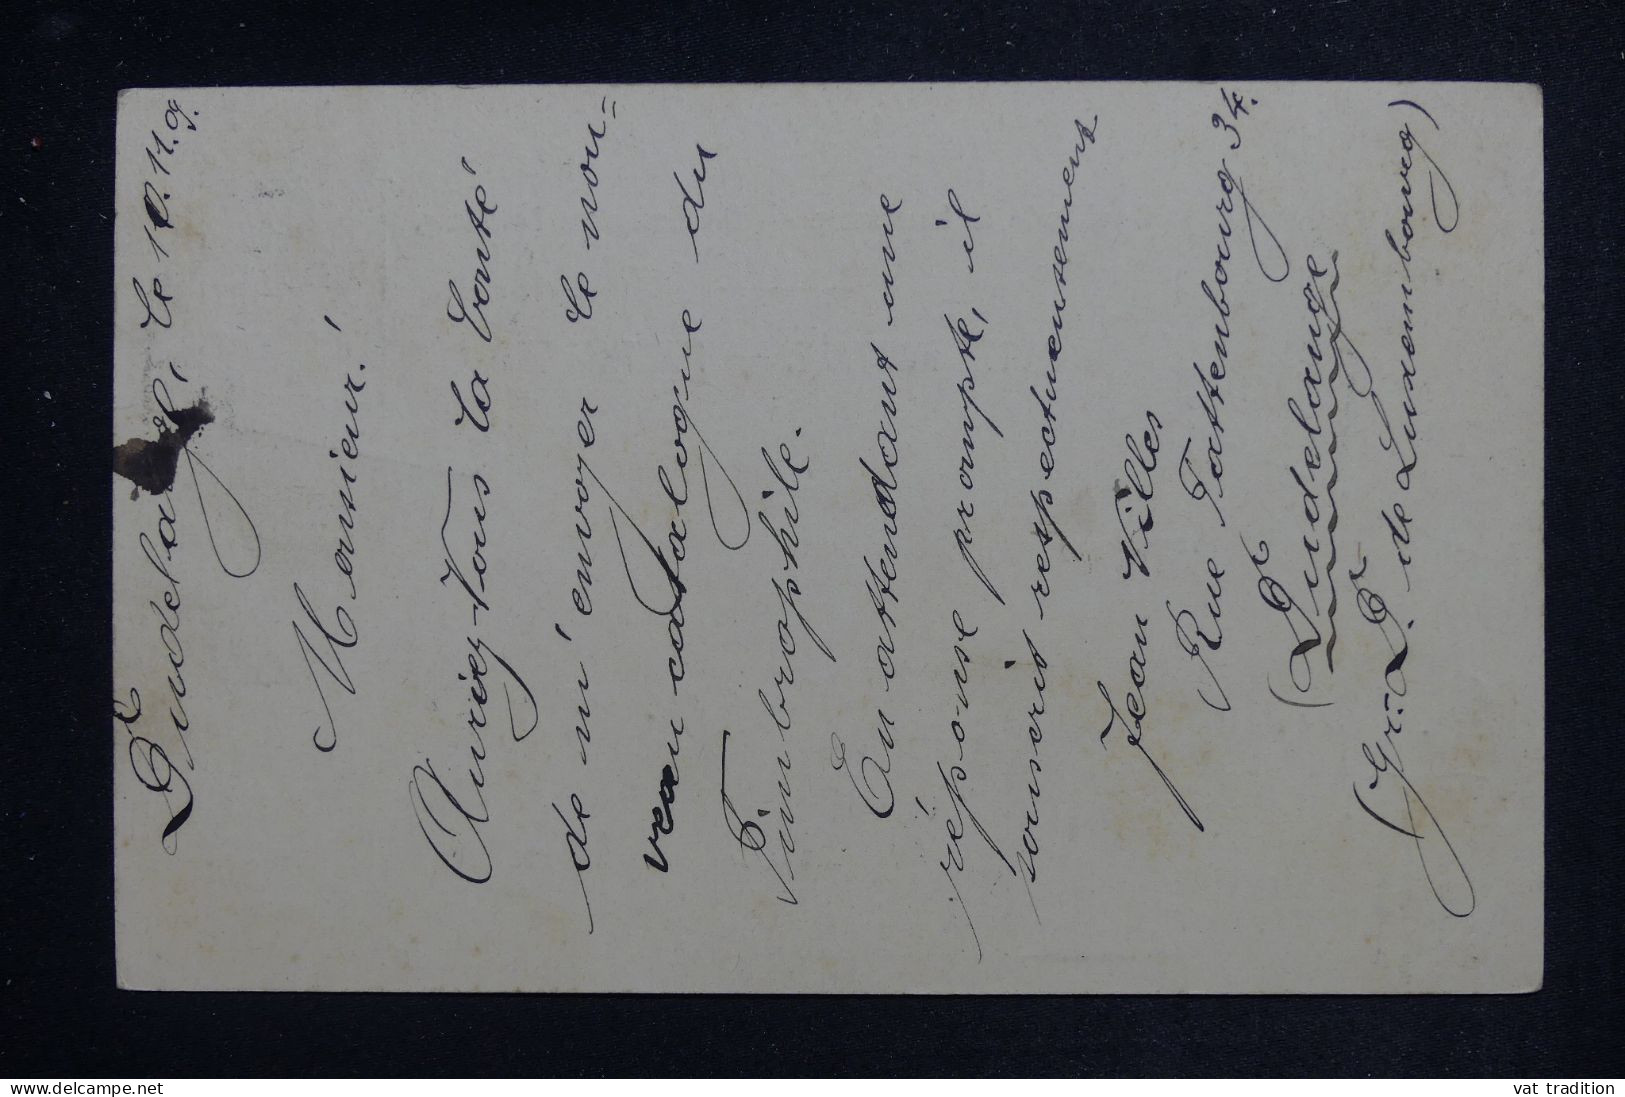 Dudelange, le 10.11.9.
Monsieur!
Auriez-Vous la bonté
de m'envoyer le nou=
veau catalogue du
Timbrophile.
En attendant une
réponse prompte, il
souscrit respectueusement
Jean Villes
Rue Tattenbourg 34.
(Dudelange
(Gr.-D. de Luxembourg)
www.delcampe.net
vat tradition